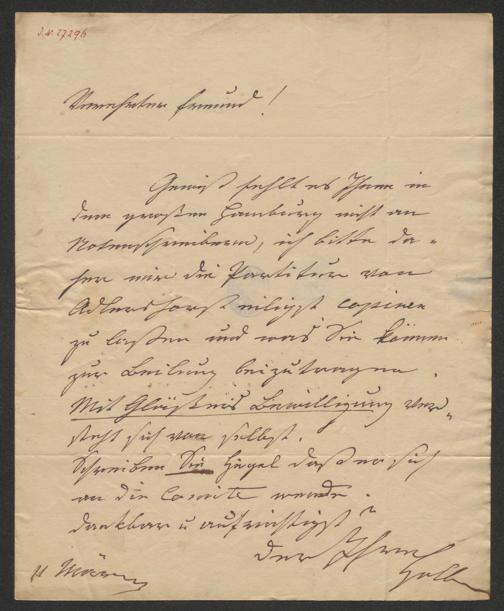 I.N. 27296
Verehrter Freund!
Gewiß fehlt es Ihnen in
dem großen Hamburg nicht an
Notenschreibern, ich bitte da-
her mir die Partitur von
Adlershorst eiligst copiren
zu laßen und was Sie können
zur Eeilung beizutragen.
Mit Gläsers Bewilligung ver-
steht sich von selbst.
Schreiben Sie Hegel daß er sich
an die Comite wende.
Dankbar u aufrichtigst
der Ihre
Holb
März